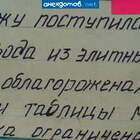 анекдотов.net
жу поступила
вода из элитны
облагорожена,
и таблицы м
ограничен